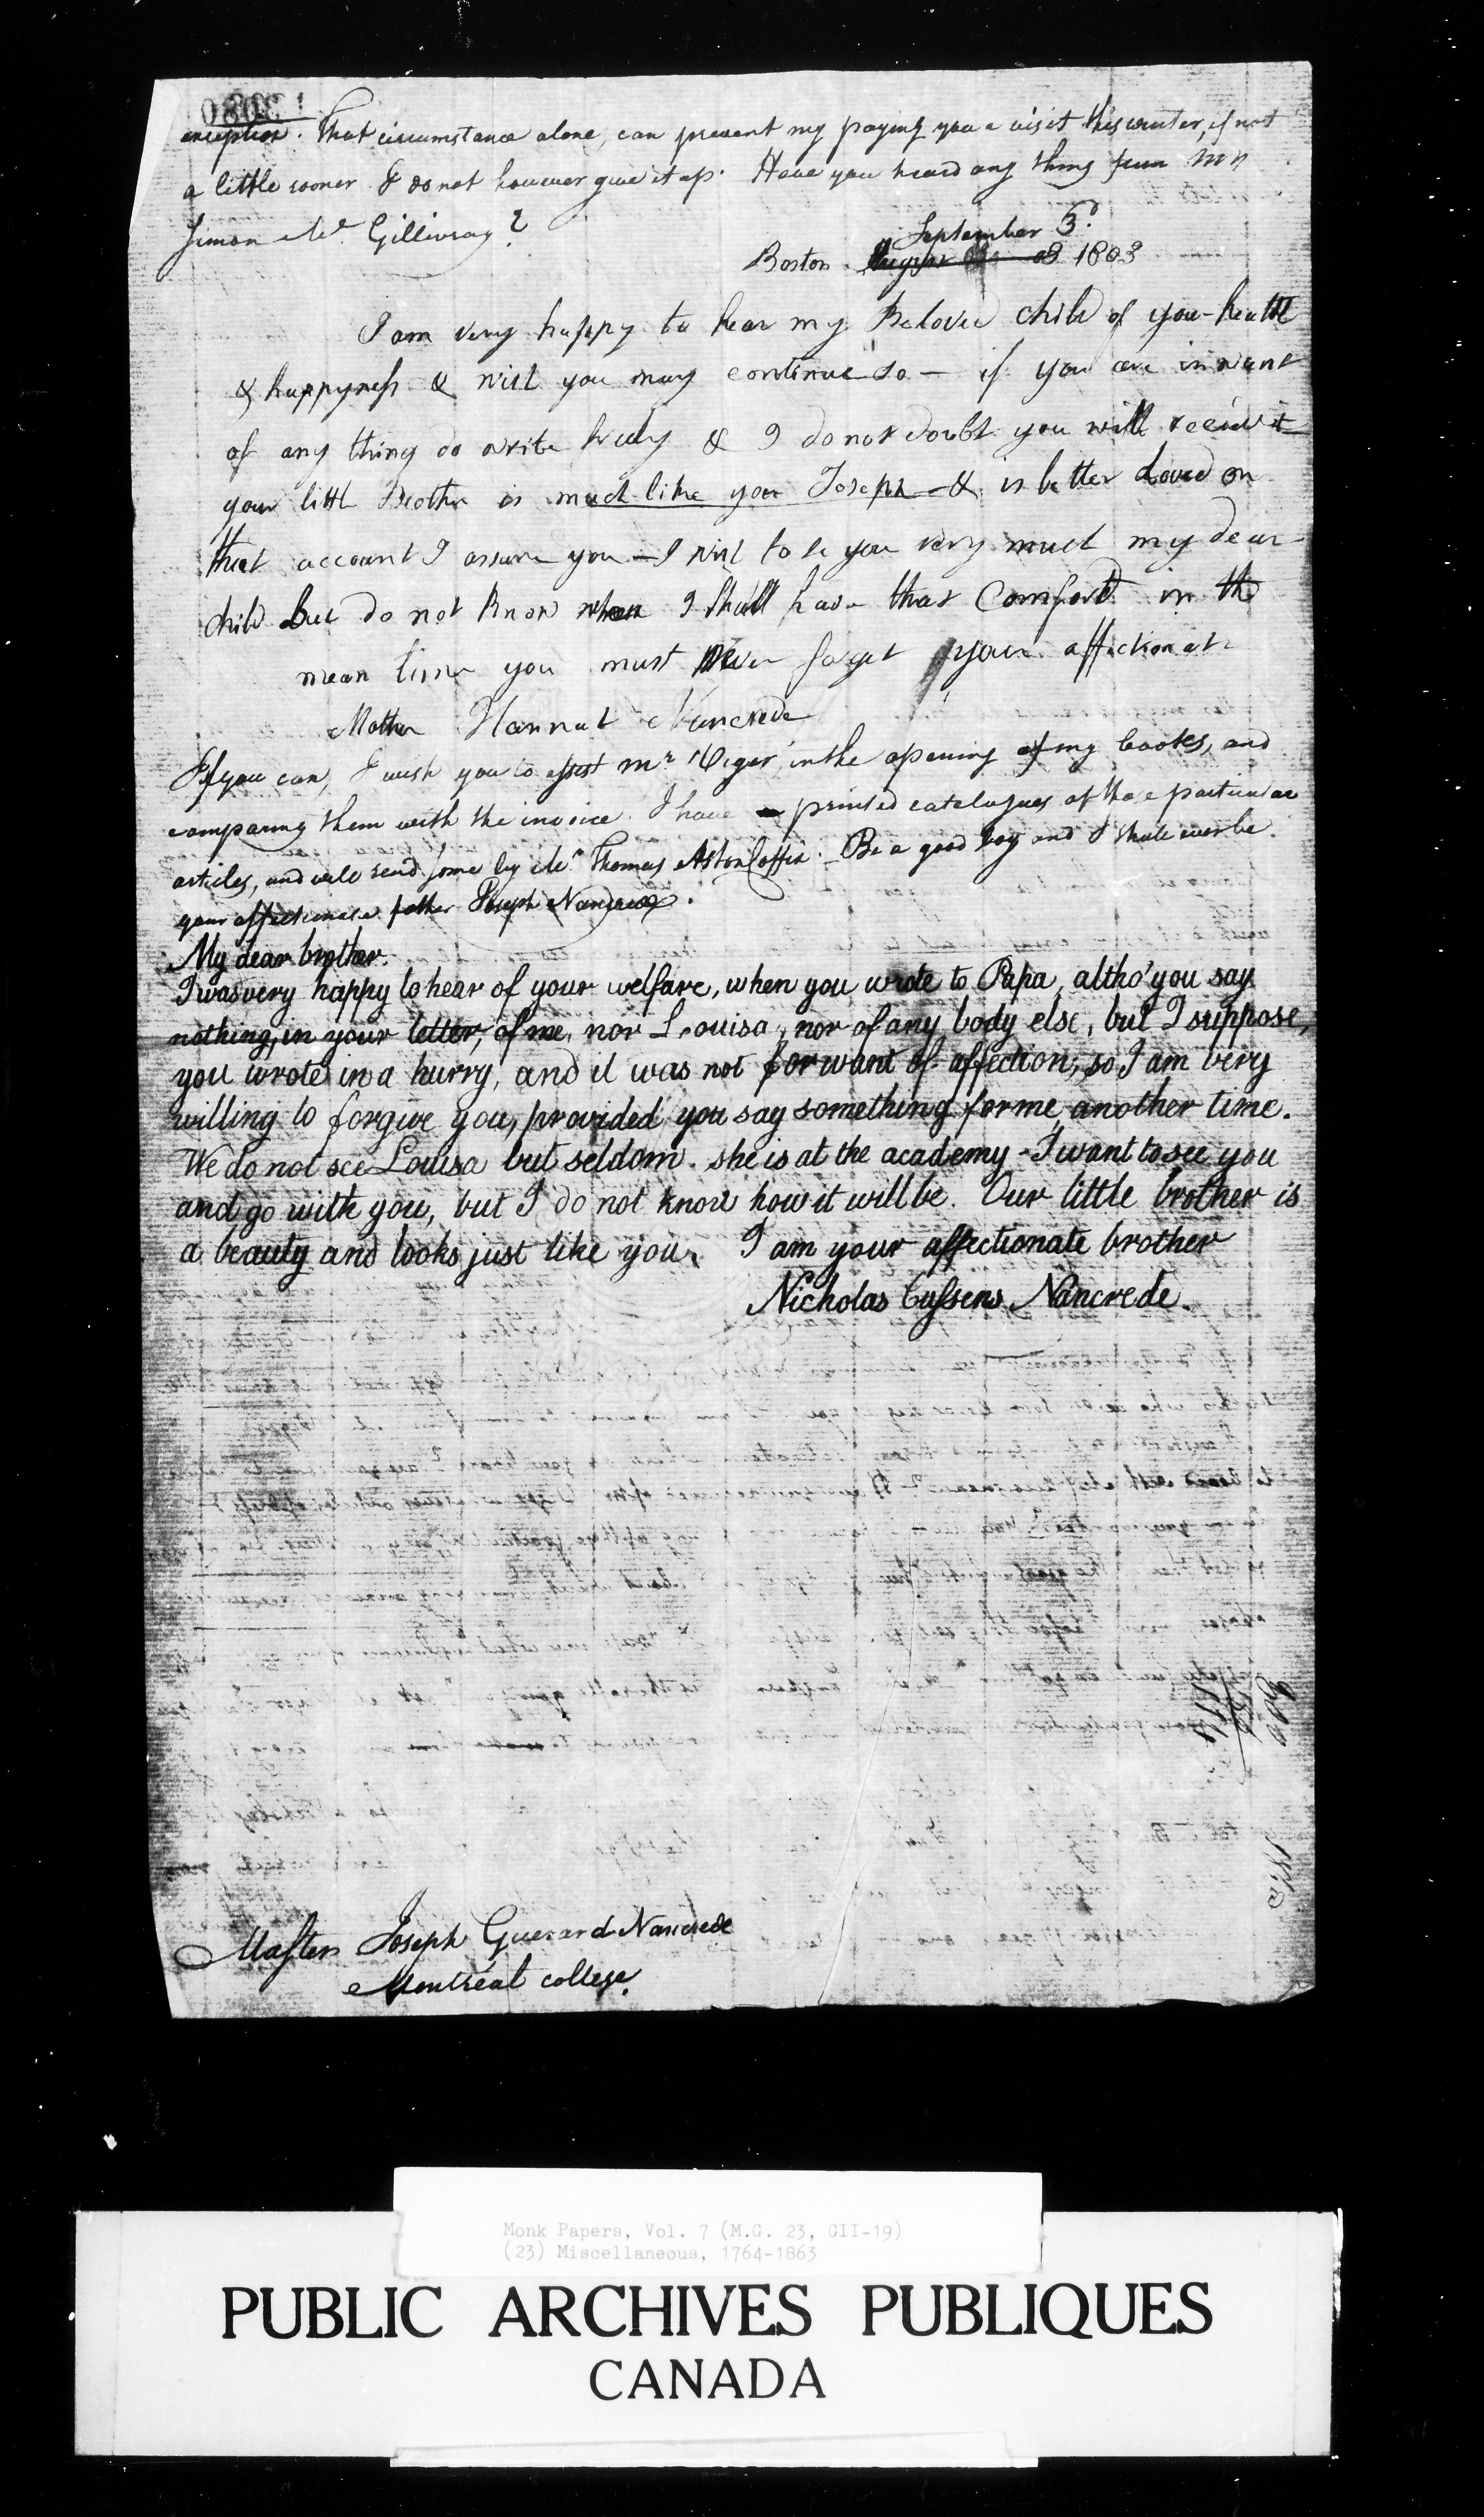 exception. That circumstance alone, can prevent my paying you a visit this winter, if not
a little sooner I do not however give it up. Have you heard any thing from Mr
Simon Mc. Gillivray?
September 3d
Boston. August 03 1803
I am very happy to hear my Beloved child of your health
& happyness & wish you may continue so — if you are in want
of any thing do write freely & I do not doubt you will receive it
your little Brother is much like you Joseph — & is better Loved on
that account I assure you — I wish to se you very much my dear
child but do not know when I shall have that Comfort in the
mean time you must never forget your affectionate
Mother Hannah Nancrede
If you can, I wish you to assist Mr Viger in the opening of my books, and
comparing them with the invoice. I have printed catalogues of those particular
articles, and will send some by Mr Thomas Aston Coffin. Be a good boy and I shall ever be
your affectionate father Joseph Nancrede.
My dear brother.
I was very happy to hear of your welfare, when you wrote to Papa, altho' you say
nothing, in your letter, of me, nor Louisa, nor of any body else, but I suppose,
you wrote in a hurry, and it was not for want of affection, so I am very
willing to forgive you, provided you say something for me another time.
We do not see Louisa but seldom. she is at the academy - I want to see you
and go with you, but I do not know how it will be. Our little brother is
a beauty and looks just like you. I am your affectionate brother
Nicholas Cussens Nancrede.
Master Joseph Guerard Nancrede
Montréal college.
Monk Papers, Vol. 7 (M.G. 23, GII-19)
(23) Miscellaneous, 1764-1863
PUBLIC ARCHIVES PUBLIQUES
CANADA